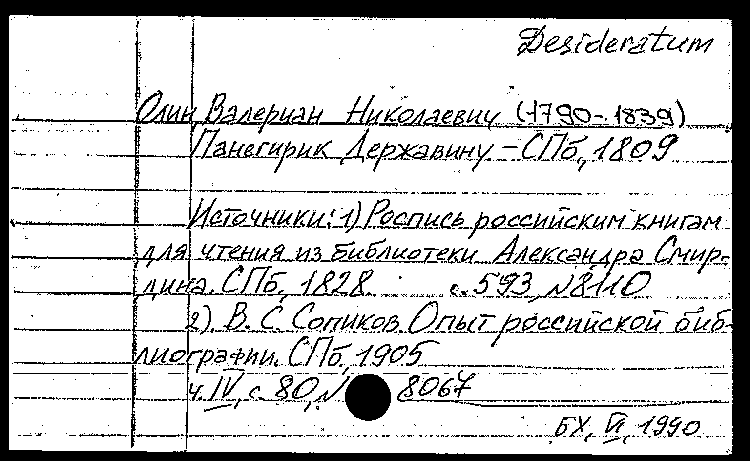 Desideratum
Олин, Валериан Николаевич (1790-1839)
Панегирик Державину – СПб., 1809
Источники: 1) Роспись российским книгам
для чтения из библиотеки Александра Смир-
дина. СПб., 1828 с. 593, №8110
2). В. С. Сопиков. Опыт российской биб-
лиографии. СПб., 1905
ч. IV, с. 80, № 8067
БХ, VI, 1990